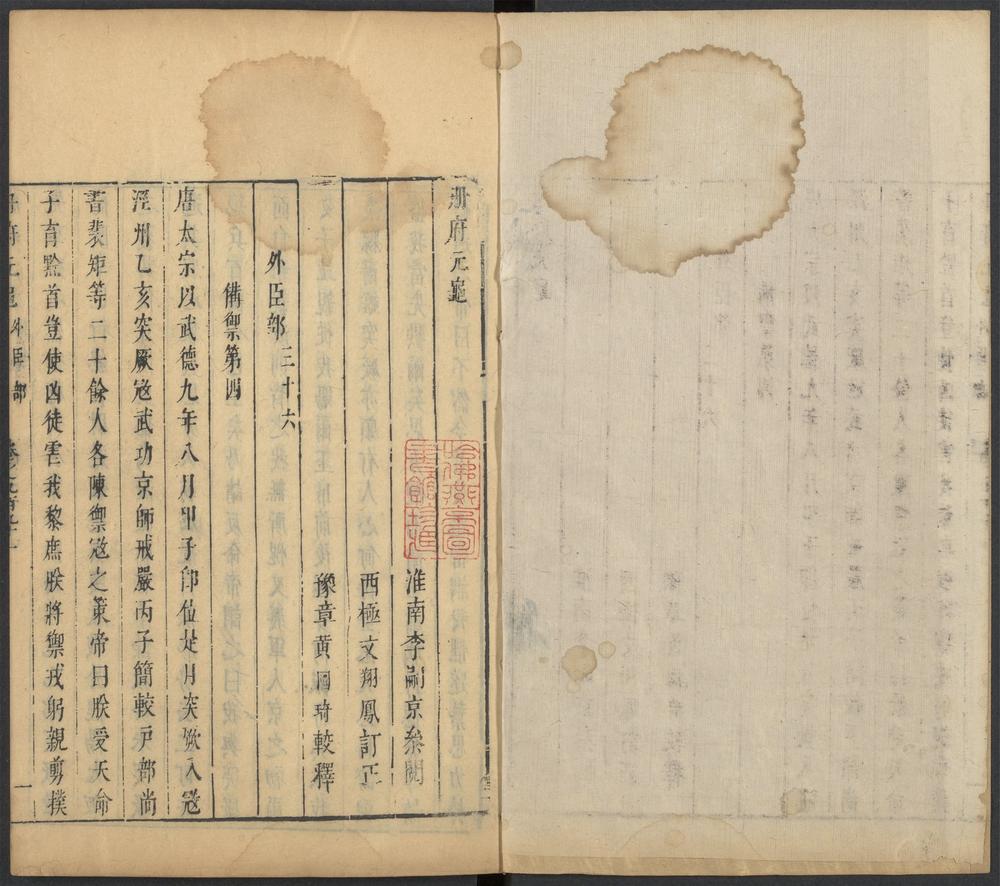 冊府元龜
淮南李嗣京叅閱
西極文翔鳳訂正
豫章黃國琦較釋
外臣部三十六
備禦第四
唐太宗以武德九年八月甲子卽位是月突厥入寇
涇州乙亥突厥寇武功京師戒嚴丙子簡較戸部尚
書裴矩等二十餘人各陳禦寇之策帝曰朕受天命
子育黔首豈使凶徒害我黎庶朕將禦戎躬親剪撲
冊府元龜 外臣部 一
哈佛燕京圖
書館珍藏